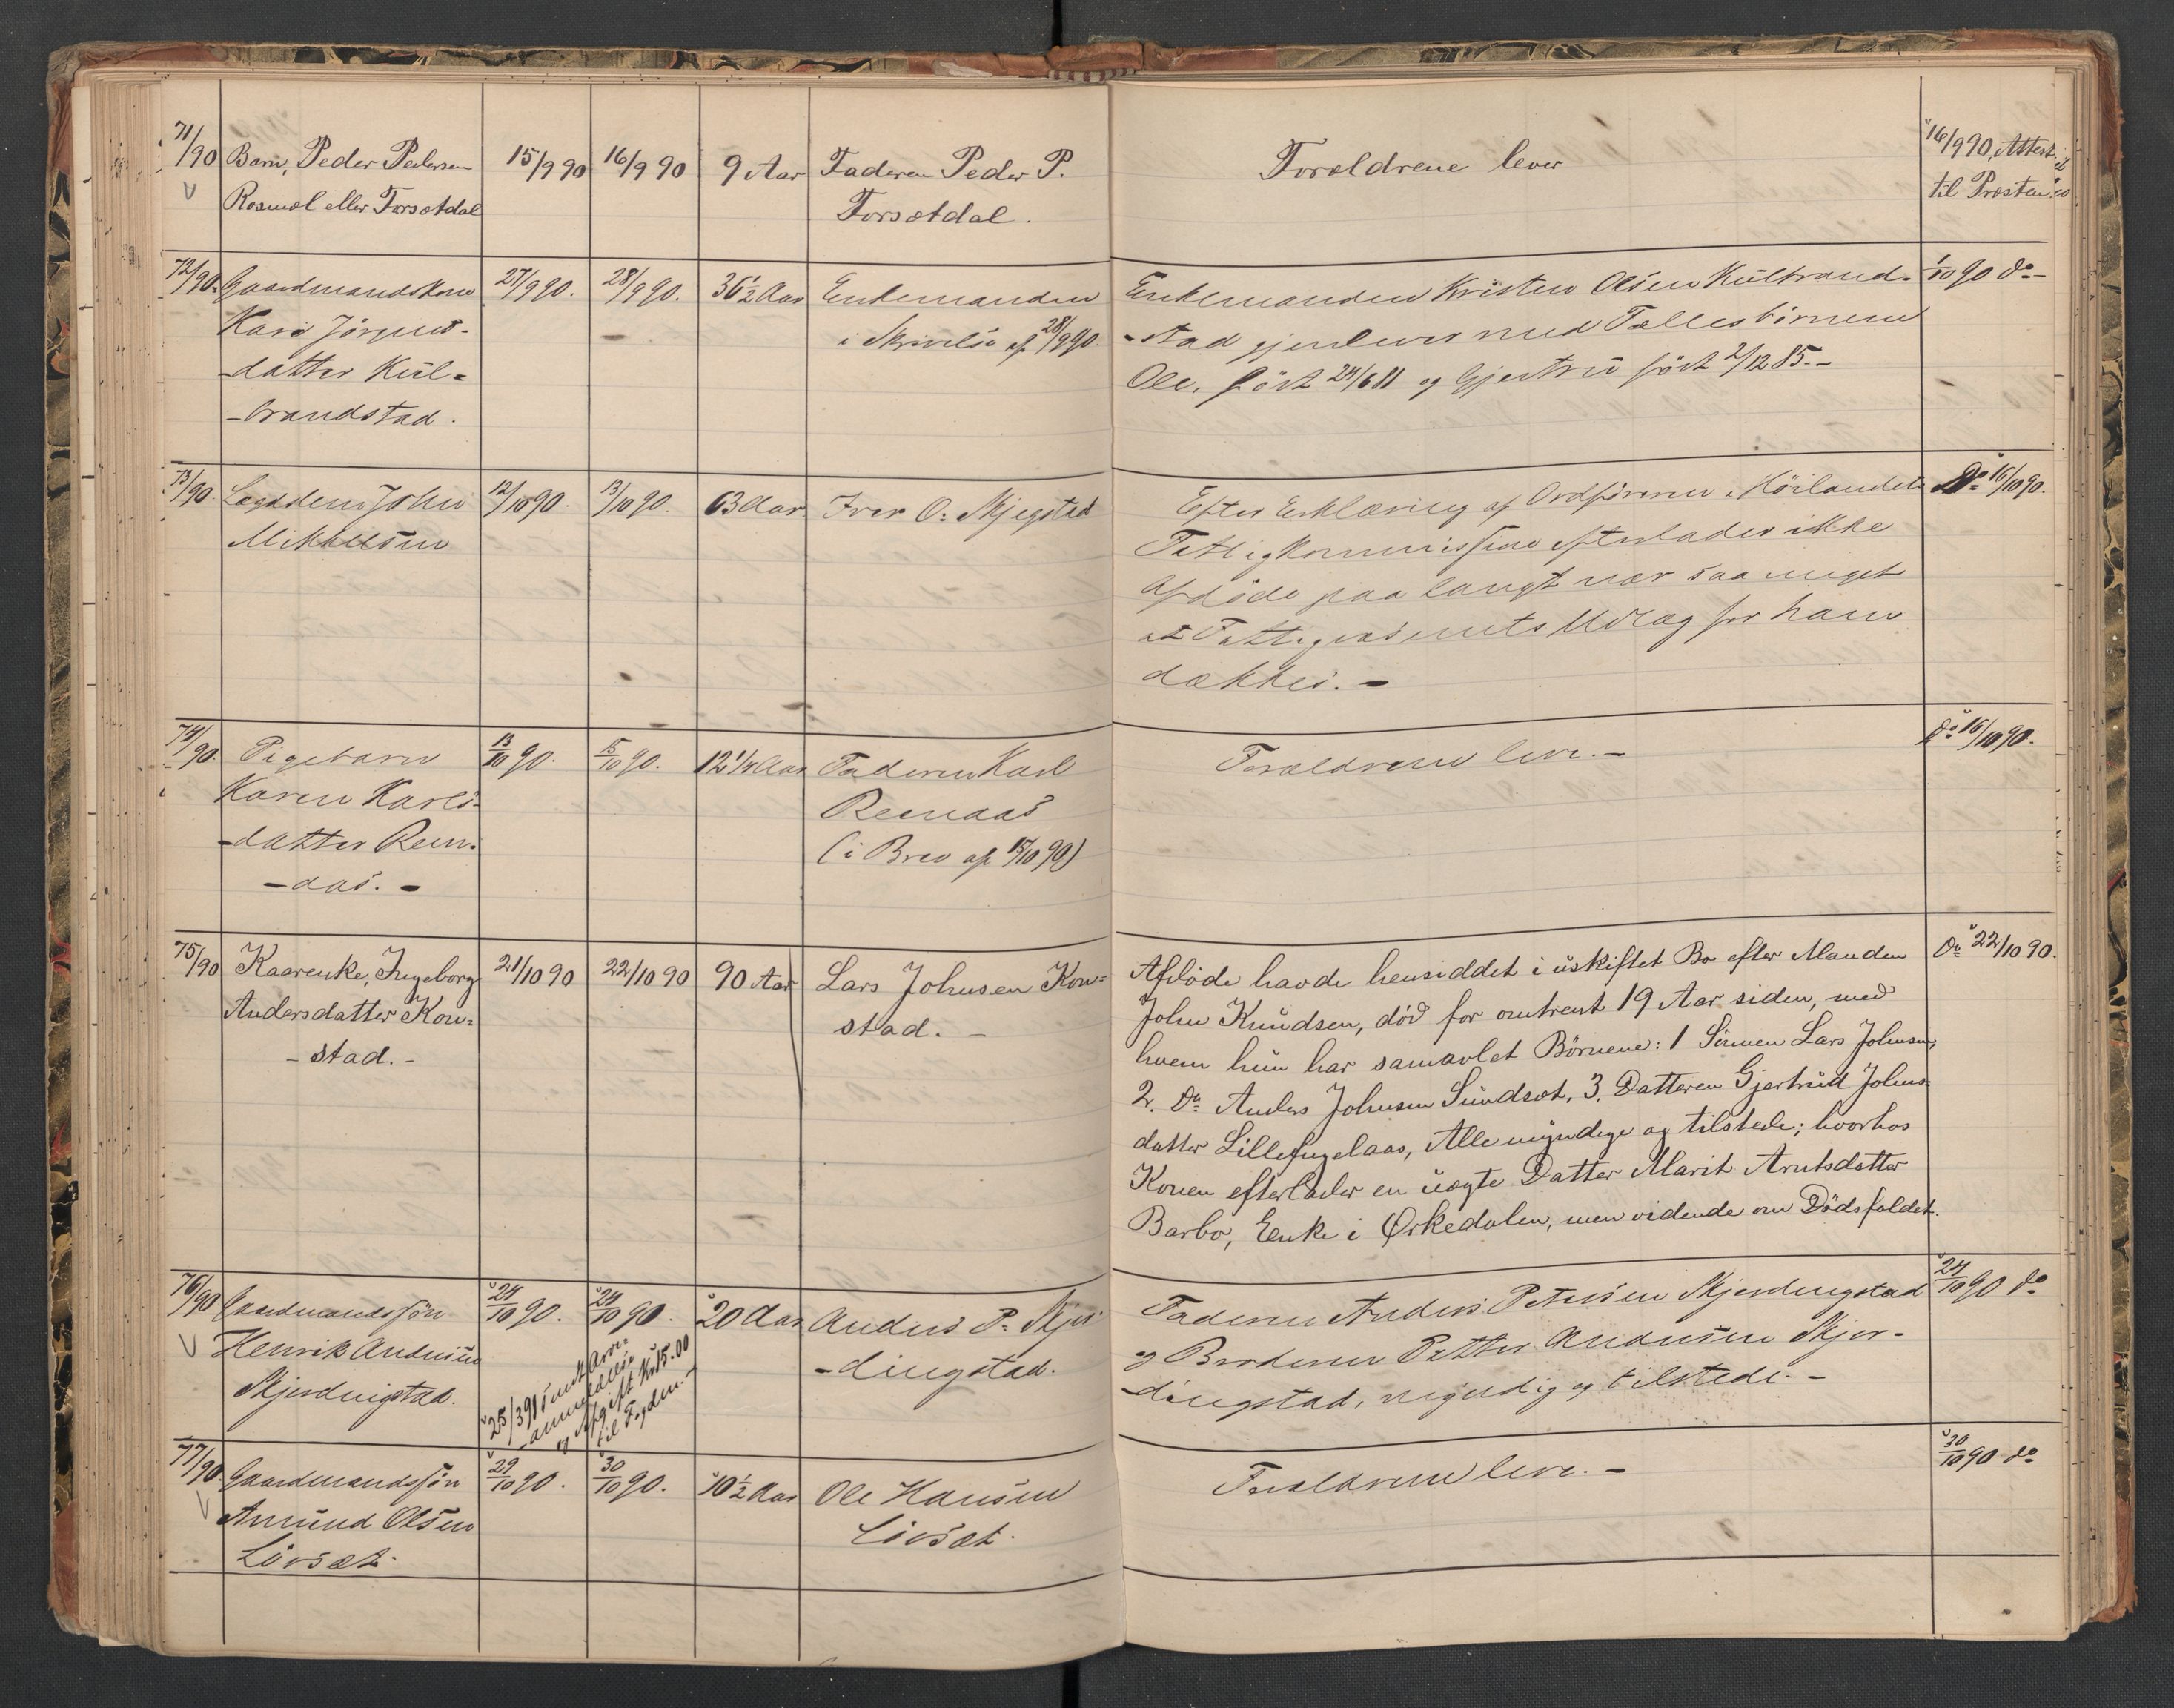 71/90 Barn, Peder Pedersen 15/9 90 16/9 90 9 Aar Faderen Peder P. Forældrene lever 16/9 90, Attest
Rosmæl eller Forsætdal Forsætdal. til Præsten
72/90. Gaardmandskone 27/9 90. 28/9 90. 36½ Aar Enkemanden Enkemanden Kristen Olsen Kulbrand- 1/10 90 do-
Kari Jörgens- i Skrivelse af 28/9 90. -stad gjenlever med Fællesbörnene
-datter Kul- Ole, född 24/6 81 og Gjertru född 2/12 85.-
-brandstad.
73/90. Lægdslem John 12/10 90. 13/10 90. 63 Aar Iver O: Skjegstad Efter Erklæring af Ordföreren i Höilandets Do 16/10 90.
Mikkelsen Fattigkommission efterlader ikke
Afdöde paa langt nær saa meget
at Fattigvæsenets Udlæg for ham
dækkes.-
74/90. Pigebarn 13/10 90. 15/10 90. 12¼ Aar Faderen Karl Forældrene leve.- do 16/10 90.
Karen Karls- Remaas
-datter Rem- (i Brev af 15/10 90)
-aas.-
75/90 Kaarenke, Ingeborg 21/10 90 22/10 90 90 Aar Lars Johnsen Kon- Afdöde havde hensiddet i uskiftet Bo efter Manden Do 22/10 90.
Andersdatter Kon- stad.- John Knudsen, död for omtrent 19 Aar siden, med
-stad.- hvem hun har samavlet Börnene: 1 Sönnen Lars Johnsen,
2. Do Anders Johnsen Sundsæt, 3. Datteren Gjertrud Johns-
datter Lillefuglaas, Alle myndige og tilstede; hvorhos
Konen efterlader en uægte Datter Marit Arntsdatter
Barbo, Enke i Ørkedalen, men vidende om Dödsfaldet.
76/90 Gaardmandssön 24/10 90. 24/10 90. 20 Aar Anders P. Skjer- Faderen Anders Petersen Skjerdingstad 24/10 90 do
Henrik Andersen -dingstad. og Broderen Petter Andersen Skjer-
Skjerdingstad. -dingstad, myndig og tilstede.-
25/3 91 sendt Arve-
-anmeldelse
og Afgift Kr 15.00
til Fogden.-
77/90. Gaardmandssön 29/10 90. 30/10 90. 10½ Aar Ole Hansen Forældrene leve.- 30/10 90 do
Amund Olsen Lövsæt.
Lövsæt.